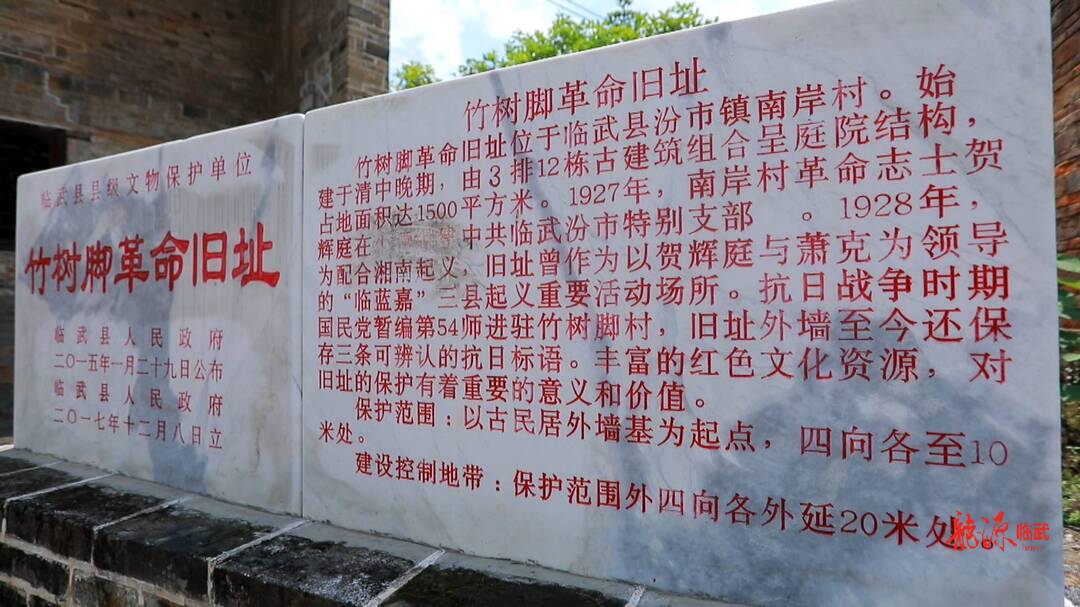 临武县县级文物保护单位
竹树脚革命旧址
临武县人民政府
二〇一五年一月二十九日公布
临武县人民政府
二〇一七年十二月八日立
竹树脚革命旧址
竹树脚革命旧址位于临武县汾市镇南岸村。始
建于清中晚期，由3排12栋古建筑组合呈庭院结构，
占地面积达1500平方米。1927年，南岸村革命志士贺
辉庭在 建中共临武汾市特别支部 。1928年，
为配合湘南起义，旧址曾作为以贺辉庭与萧克为领导
的“临蓝嘉”三县起义重要活动场所。抗日战争时期
国民党暂编第54师进驻竹树脚村，旧址外墙至今还保
存三条可辨认的抗日标语。丰富的红色文化资源，对
旧址的保护有着重要的意义和价值。
保护范围：以古民居外墙基为起点，四向各至10
米处。
建设控制地带：保护范围外四向各外延20米处。
龙源临武